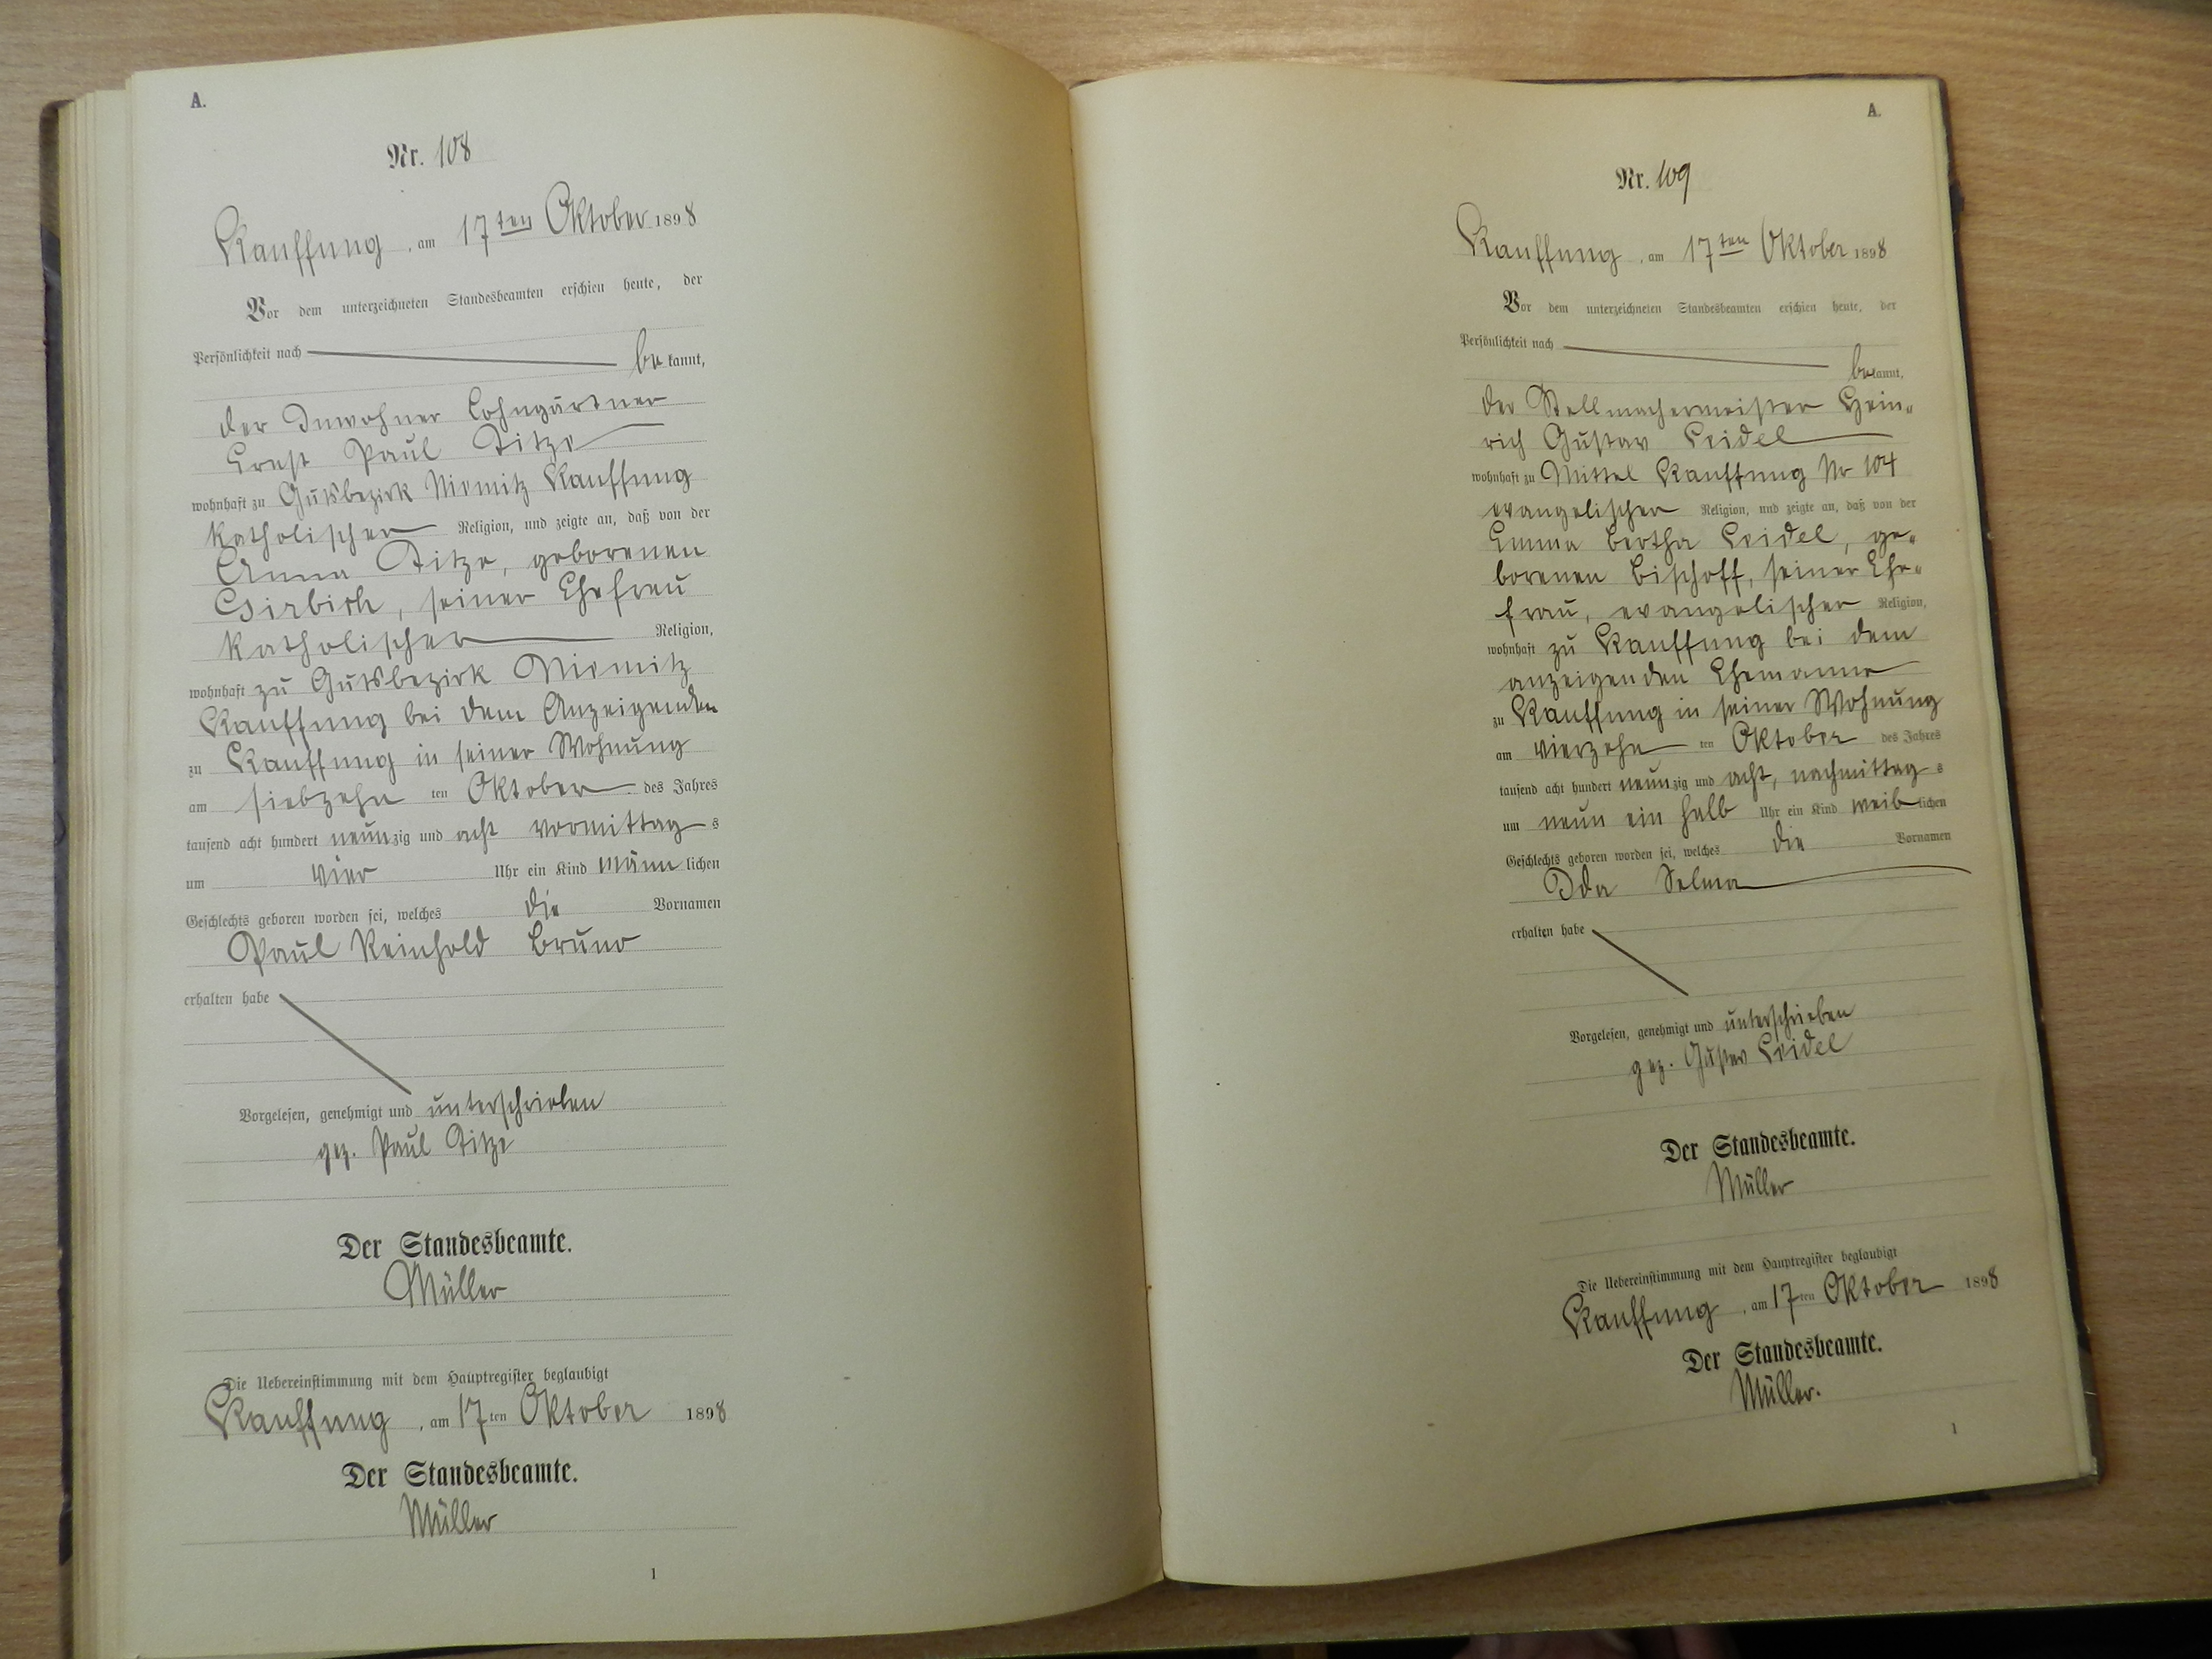 A.
Nr. 108
Kauffung, am 17ten Oktober 1898
Vor dem unterzeichneten Standesbeamten erschien heute, der
Persönlichkeit nach
bekannt,
der Inwohner Lohngärtner
Ernst Paul Titze
wohnhaft zu Gutsbezirk Niemitz Kauffung
katholischer Religion, und zeigte an, daß von der
Anna Titze, geborenen
seiner Ehefrau
katholischer Religion,
wohnhaft zu Gutsbezirk Niemitz
Kauffung bei dem Anzeigenden
zu Kauffung in seiner Wohnung
am siebzehn ten Oktober des Jahres
tausend acht hundert neunzig und acht vormittags
um vier Uhr ein Kind männlichen
Geschlechts geboren worden sei, welches die Vornamen
Paul Reinhold Bruno
erhalten habe
Vorgelesen, genehmigt und unterschrieben
gez. Paul Titze
Der Standesbeamte.
Müller
Die Uebereinstimmung mit dem Hauptregister beglaubigt
Kauffung, am 17ten Oktober 1898
Der Standesbeamte.
Müller
1
A.
Nr. 109
Kauffung, am 17ten Oktober 1898
Vor dem unterzeichneten Standesbeamten erschien heute, der
Persönlichkeit nach
bekannt,
der Stellmachermeister Hein-
rich Gustav Seidel
wohnhaft zu Mittel Kauffung Nr 104
evangelischer Religion, und zeigte an, daß von der
Emma Bertha Seidel, ge-
borenen Bischoff, seiner Ehe-
frau, evangelischer Religion,
wohnhaft zu Kauffung bei dem
anzeigenden Ehemanne
zu Kauffung in seiner Wohnung
am vierzehn ten Oktober des Jahres
tausend acht hundert neunzig und acht, nachmittags
um neun ein halb Uhr ein Kind weiblichen
Geschlechts geboren worden sei, welches die Vornamen
Ida Selma
erhalten habe
Vorgelesen, genehmigt und unterschrieben
gez. Gustav Seidel
Der Standesbeamte.
Müller
Die Uebereinstimmung mit dem Hauptregister beglaubigt
Kauffung, am 17ten Oktober 1898
Der Standesbeamte.
Müller.
1